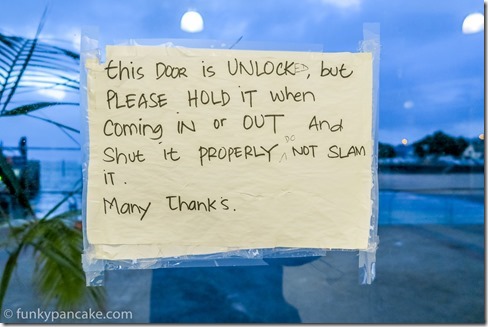 this DOOR is UNLOCKED, but
PLEASE HOLD iT when
Coming iN or OUT And
Shut it PROPERLY DO NOT SLAM
iT.
Many Thank's.
© funkypancake.com